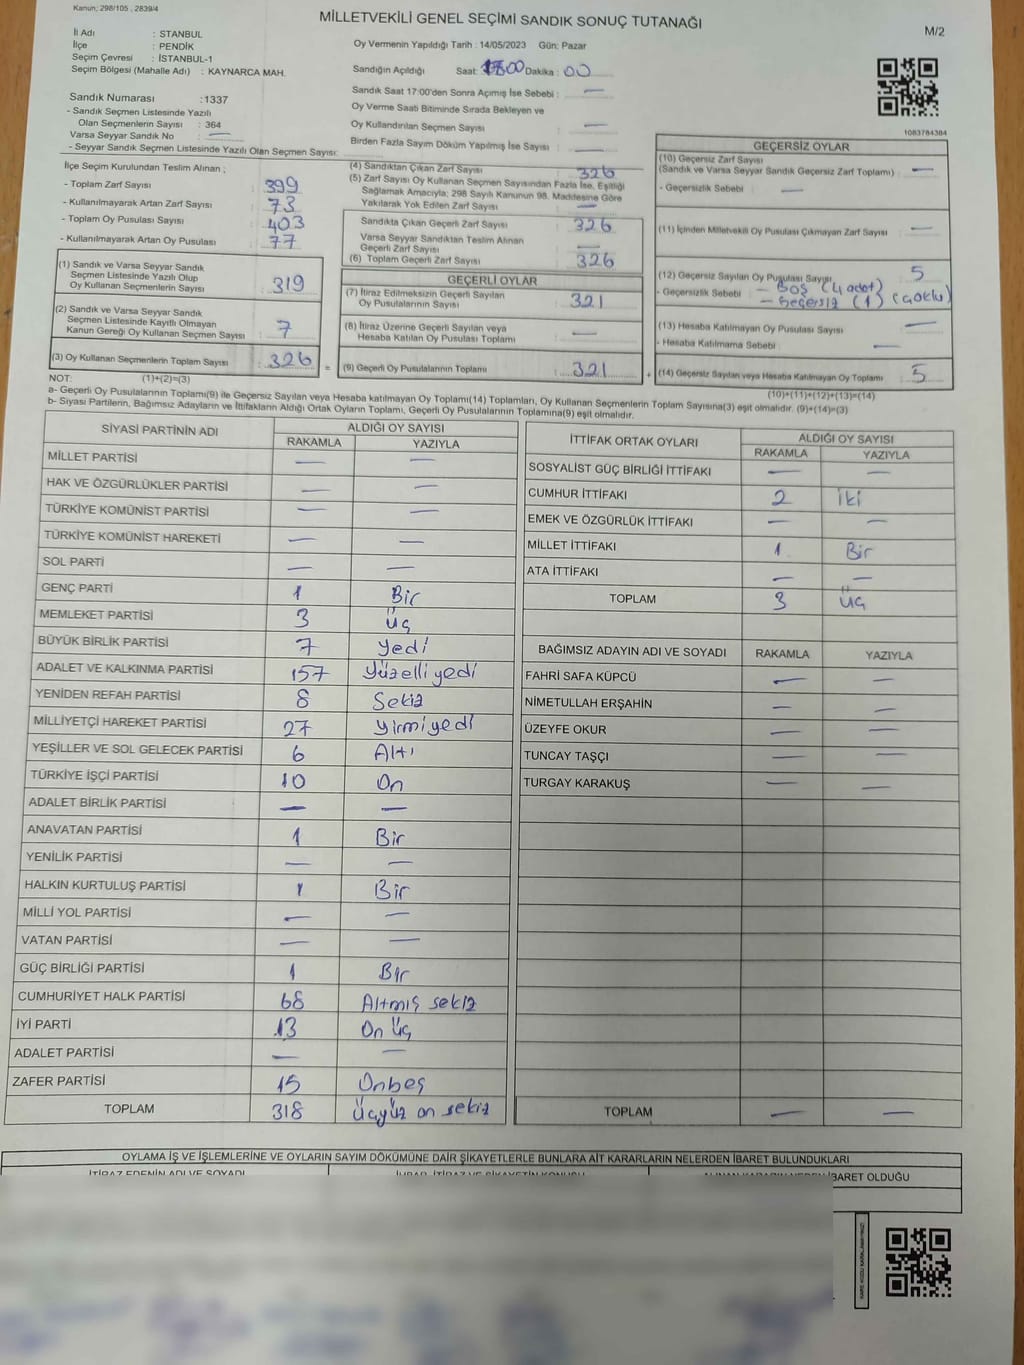 Kanun: 298/105 , 2839/4
MİLLETVEKİLİ GENEL SEÇİMİ SANDIK SONUÇ TUTANAĞI
M/2
İl Adı : STANBUL
İlçe : PENDİK
Seçim Çevresi : İSTANBUL-1
Seçim Bölgesi (Mahalle Adı) : KAYNARCA MAH.
Oy Vermenin Yapıldığı Tarih : 14/05/2023 Gün: Pazar
Sandığın Açıldığı Saat: Dakika : 00
Sandık Saat 17:00'den Sonra Açımış İse Sebebi : —
Oy Verme Saati Bitiminde Sırada Bekleyen ve
Oy Kullandırılan Seçmen Sayısı : —
Birden Fazla Sayım Döküm Yapılmış İse Sayısı : —
Sandık Numarası : 1337
- Sandık Seçmen Listesinde Yazılı
Olan Seçmenlerin Sayısı : 364
Varsa Seyyar Sandık No : —
- Seyyar Sandık Seçmen Listesinde Yazılı Olan Seçmen Sayısı:
1083784384
İlçe Seçim Kurulundan Teslim Alınan ;
- Toplam Zarf Sayısı : 399
- Kullanılmayarak Artan Zarf Sayısı : 73
- Toplam Oy Pusulası Sayısı : 403
- Kullanılmayarak Artan Oy Pusulası : 77
(1) Sandık ve Varsa Seyyar Sandık
Seçmen Listesinde Yazılı Olup
Oy Kullanan Seçmenlerin Sayısı : 319
(2) Sandık ve Varsa Seyyar Sandık
Seçmen Listesinde Kayıtlı Olmayan
Kanun Gereği Oy Kullanan Seçmen Sayısı : 7
(3) Oy Kullanan Seçmenlerin Toplam Sayısı : 326
(4) Sandıktan Çıkan Zarf Sayısı : 326
(5) Zarf Sayısı Oy Kullanan Seçmen Sayısından Fazla İse, Eşitliği
Sağlamak Amacıyla; 298 Sayılı Kanunun 98. Maddesine Göre
Yakılarak Yok Edilen Zarf Sayısı : —
Sandıkta Çıkan Geçerli Zarf Sayısı : 326
Varsa Seyyar Sandıktan Teslim Alınan
Geçerli Zarf Sayısı : —
(6) Toplam Geçerli Zarf Sayısı : 326
GEÇERLİ OYLAR
(7) İtiraz Edilmeksizin Geçerli Sayılan
Oy Pusulalarının Sayısı : 321
(8) İtiraz Üzerine Geçerli Sayılan veya
Hesaba Katılan Oy Pusulası Toplamı : —
= (9) Geçerli Oy Pusulalarının Toplamı : 321 +
GEÇERSİZ OYLAR
(10) Geçersiz Zarf Sayısı
(Sandık ve Varsa Seyyar Sandık Geçersiz Zarf Toplamı) : —
- Geçersizlik Sebebi : —
(11) İçinden Milletvekili Oy Pusulası Çıkmayan Zarf Sayısı : —
(12) Geçersiz Sayılan Oy Pusulası Sayısı : 5
- Geçersizlik Sebebi : — Boş (4 adet)
— Geçersiz (1) (çoklu)
(13) Hesaba Katılmayan Oy Pusulası Sayısı : —
- Hesaba Katılmama Sebebi : —
(14) Geçersiz Sayılan veya Hesaba Katılmayan Oy Toplamı : 5
NOT: (1)+(2)=(3)
(10)+(11)+(12)+(13)=(14)
a- Geçerli Oy Pusulalarının Toplamı(9) ile Geçersiz Sayılan veya Hesaba katılmayan Oy Toplamı(14) Toplamları, Oy Kullanan Seçmenlerin Toplam Sayısına(3) eşit olmalıdır. (9)+(14)=(3)
b- Siyasi Partilerin, Bağımsız Adayların ve İttifakların Aldığı Ortak Oyların Toplamı, Geçerli Oy Pusulalarının Toplamına(9) eşit olmalıdır.
SİYASİ PARTİNİN ADI ALDIĞI OY SAYISI
RAKAMLA YAZIYLA
MİLLET PARTİSİ — —
HAK VE ÖZGÜRLÜKLER PARTİSİ — —
TÜRKİYE KOMÜNİST PARTİSİ — —
TÜRKİYE KOMÜNİST HAREKETİ — —
SOL PARTİ — —
GENÇ PARTİ 1 Bir
MEMLEKET PARTİSİ 3 Üç
BÜYÜK BİRLİK PARTİSİ 7 Yedi
ADALET VE KALKINMA PARTİSİ 157 Yüzelli yedi
YENİDEN REFAH PARTİSİ 8 Sekiz
MİLLİYETÇİ HAREKET PARTİSİ 27 Yirmiyedi
YEŞİLLER VE SOL GELECEK PARTİSİ 6 Altı
TÜRKİYE İŞÇİ PARTİSİ 10 On
ADALET BİRLİK PARTİSİ — —
ANAVATAN PARTİSİ 1 Bir
YENİLİK PARTİSİ — —
HALKIN KURTULUŞ PARTİSİ 1 Bir
MİLLİ YOL PARTİSİ — —
VATAN PARTİSİ — —
GÜÇ BİRLİĞİ PARTİSİ 1 Bir
CUMHURİYET HALK PARTİSİ 68 Altmış sekiz
İYİ PARTİ 13 On üç
ADALET PARTİSİ — —
ZAFER PARTİSİ 15 Onbeş
TOPLAM 318 Üçyüz on sekiz
İTTİFAK ORTAK OYLARI ALDIĞI OY SAYISI
RAKAMLA YAZIYLA
SOSYALİST GÜÇ BİRLİĞİ İTTİFAKI — —
CUMHUR İTTİFAKI 2 iki
EMEK VE ÖZGÜRLÜK İTTİFAKI — —
MİLLET İTTİFAKI 1 Bir
ATA İTTİFAKI — —
TOPLAM 3 Üç
BAĞIMSIZ ADAYIN ADI VE SOYADI RAKAMLA YAZIYLA
FAHRİ SAFA KÜPCÜ — —
NİMETULLAH ERŞAHİN — —
ÜZEYFE OKUR — —
TUNCAY TAŞÇI — —
TURGAY KARAKUŞ — —
TOPLAM — —
OYLAMA İŞ VE İŞLEMLERİNE VE OYLARIN SAYIM DÖKÜMÜNE DAİR ŞİKAYETLERLE BUNLARA AİT KARARLARIN NELERDEN İBARET BULUNDUKLARI
İTİRAZ EDENİN ADI VE SOYADI
İBARET OLDUĞU